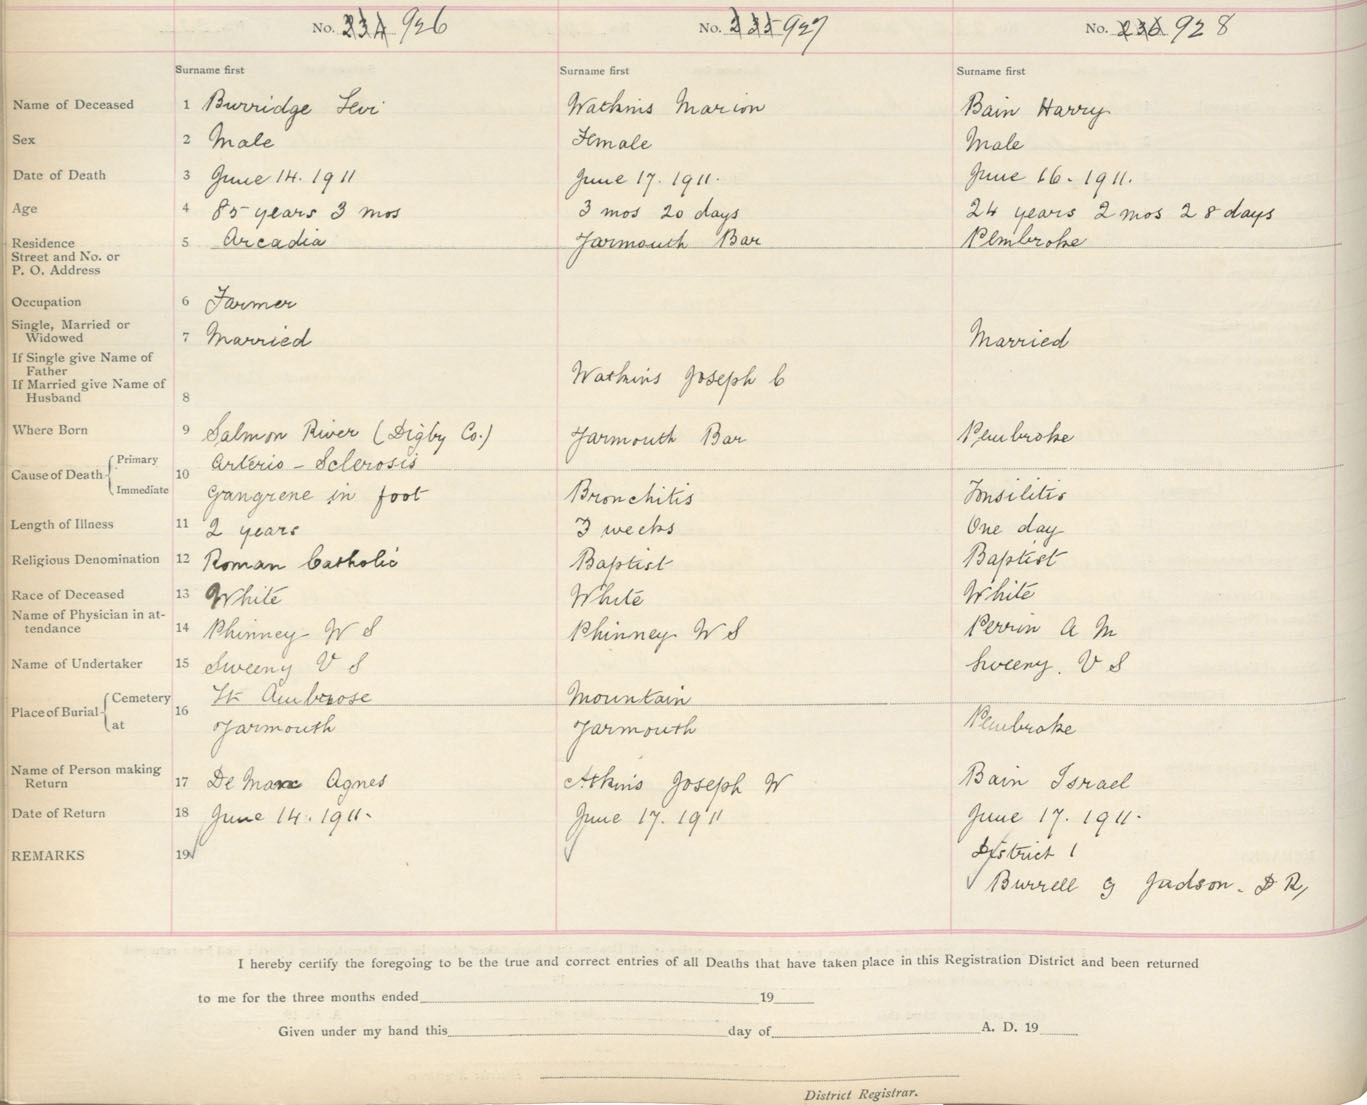 No. 234 926 No. 235 927 No. 236 928
Surname first Surname first Surname first
Name of Deceased 1 Burridge Levi Watkins Marion Bain Harry
Sex 2 Male Female Male
Date of Death 3 June 14. 1911 June 17. 1911. June 16. 1911.
Age 4 85 years 3 mos 3 mos 20 days 24 years 2 mos 28 days
Residence 5 Arcadia Yarmouth Bar Pembroke
Street and No. or
P. O. Address
Occupation 6 Farmer
Single, Married or
Widowed 7 Married Married
If Single give Name of
Father
Watkins Joseph C
If Married give Name of
Husband 8
Where Born 9 Salmon River (Digby Co.) Yarmouth Bar Pembroke
Primary Arterio-Sclerosis
Cause of Death 10
Immediate Gangrene in foot Bronchitis Tonsilitis
Length of Illness 11 2 years 3 weeks One day
Religious Denomination 12 Roman Catholic Baptist Baptist
Race of Deceased 13 White White White
Name of Physician in at-
tendance 14 Phinney W S Phinney W S Perrin A M
Name of Undertaker 15 Sweeny V S Sweeny. V S
Cemetery St Ambrose Mountain
Place of Burial 16
at Yarmouth Yarmouth Pembroke
Name of Person making
Return 17 De Agnes Atkins Joseph W Bain Israel
Date of Return 18 June 14. 1911. June 17. 1911 June 17. 1911.
REMARKS 19 District 1
Burrell G Judson. D R,
I hereby certify the foregoing to be the true and correct entries of all Deaths that have taken place in this Registration District and been returned
to me for the three months ended 19
Given under my hand this day of A. D. 19
District Registrar.